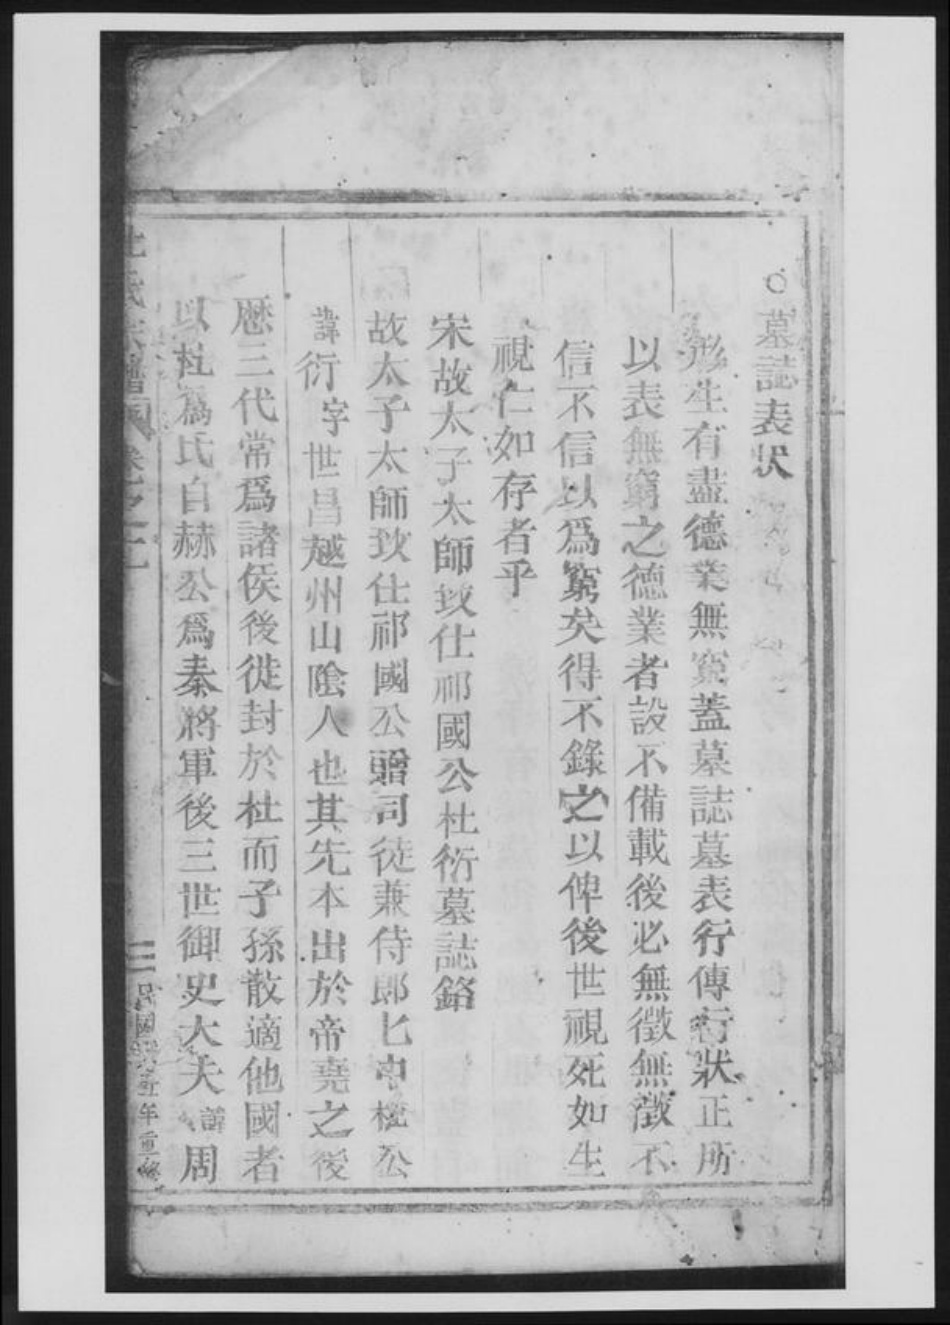 ○墓誌表狀
形生有盡德業無窮蓋墓誌墓表行傳行狀正所
以表無窮之德業者設不備載後必無徵無徵不
信不信以爲窮矣得不錄之以俾後世視死如生
視仁如存者乎
宋故太子太師致仕祁國公杜衍墓誌銘
故太子太師致仕祁國公贈司徒兼侍郎
公
諱衍字世昌越州山陰人也其先本出於帝堯之後
歷三代常爲諸侯後徙封於杜而子孫散適他國者
以杜爲氏自赫公爲秦將軍後三世御史大夫諱周
氏宗譜 卷之二 三 民國 年重修